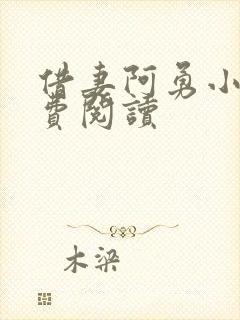 借妻阿勇小
費閱讀
木梁